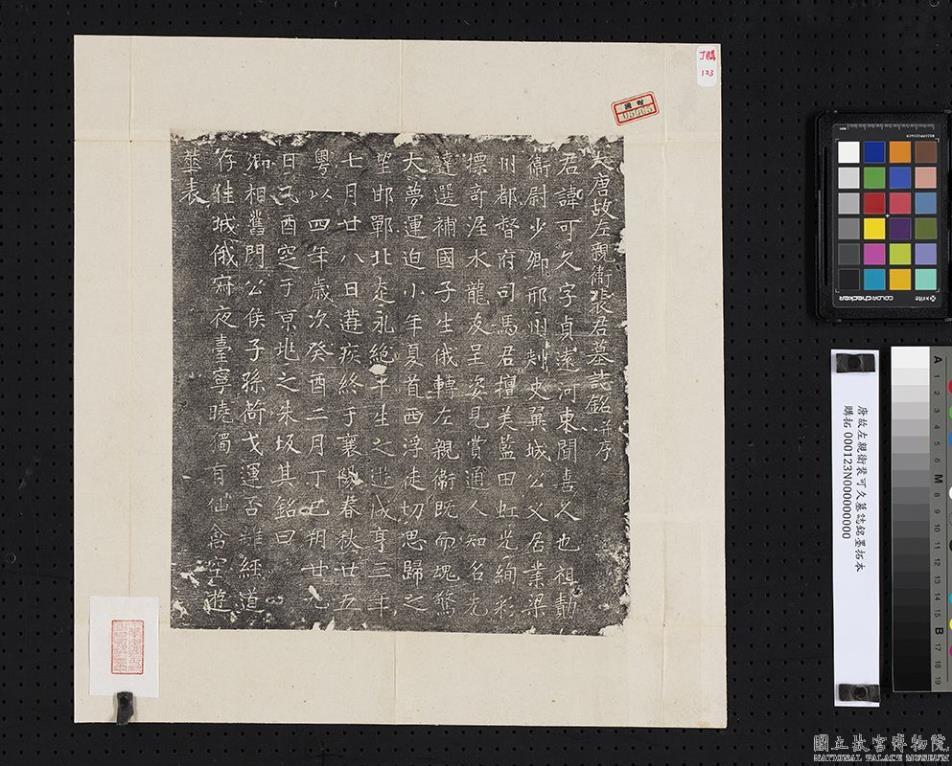 大唐故左親衛裴君墓誌銘并序
君諱可久字貞遠河東聞喜人也祖勣
衛尉少卿邢州刾史翼城公父居業梁
州都督府司馬君擅美藍田虹光絢彩
摽奇渥水龍友呈姿見賞通人知名先
達選補國子生俄轉左親衛既而魂驚
大夢運迫小年夏首西浮徒切思歸之
望邯鄲北走永絶平生之遊咸亨三年
七月廿八日遘疾終于襄陽春秋廿五
粤以四年歲次癸酉二月丁巳朔廿九
日乙酉窆于京兆之朱坂其銘曰
卿相舊門公侯子孫荀戈運否經道
存佳城俄寐夜臺寧曉獨有仙禽空遊
華表
購
123
唐故左親衛裴可久墓誌銘墨拓本
購拓 000123N000000000
x-rite
colorchecker
A 1 2 3 4 5 6 M 8 9 10 11 12 13 14 15 B 17 18 19
國立故宮博物院
NATIONAL PALACE MUSEUM